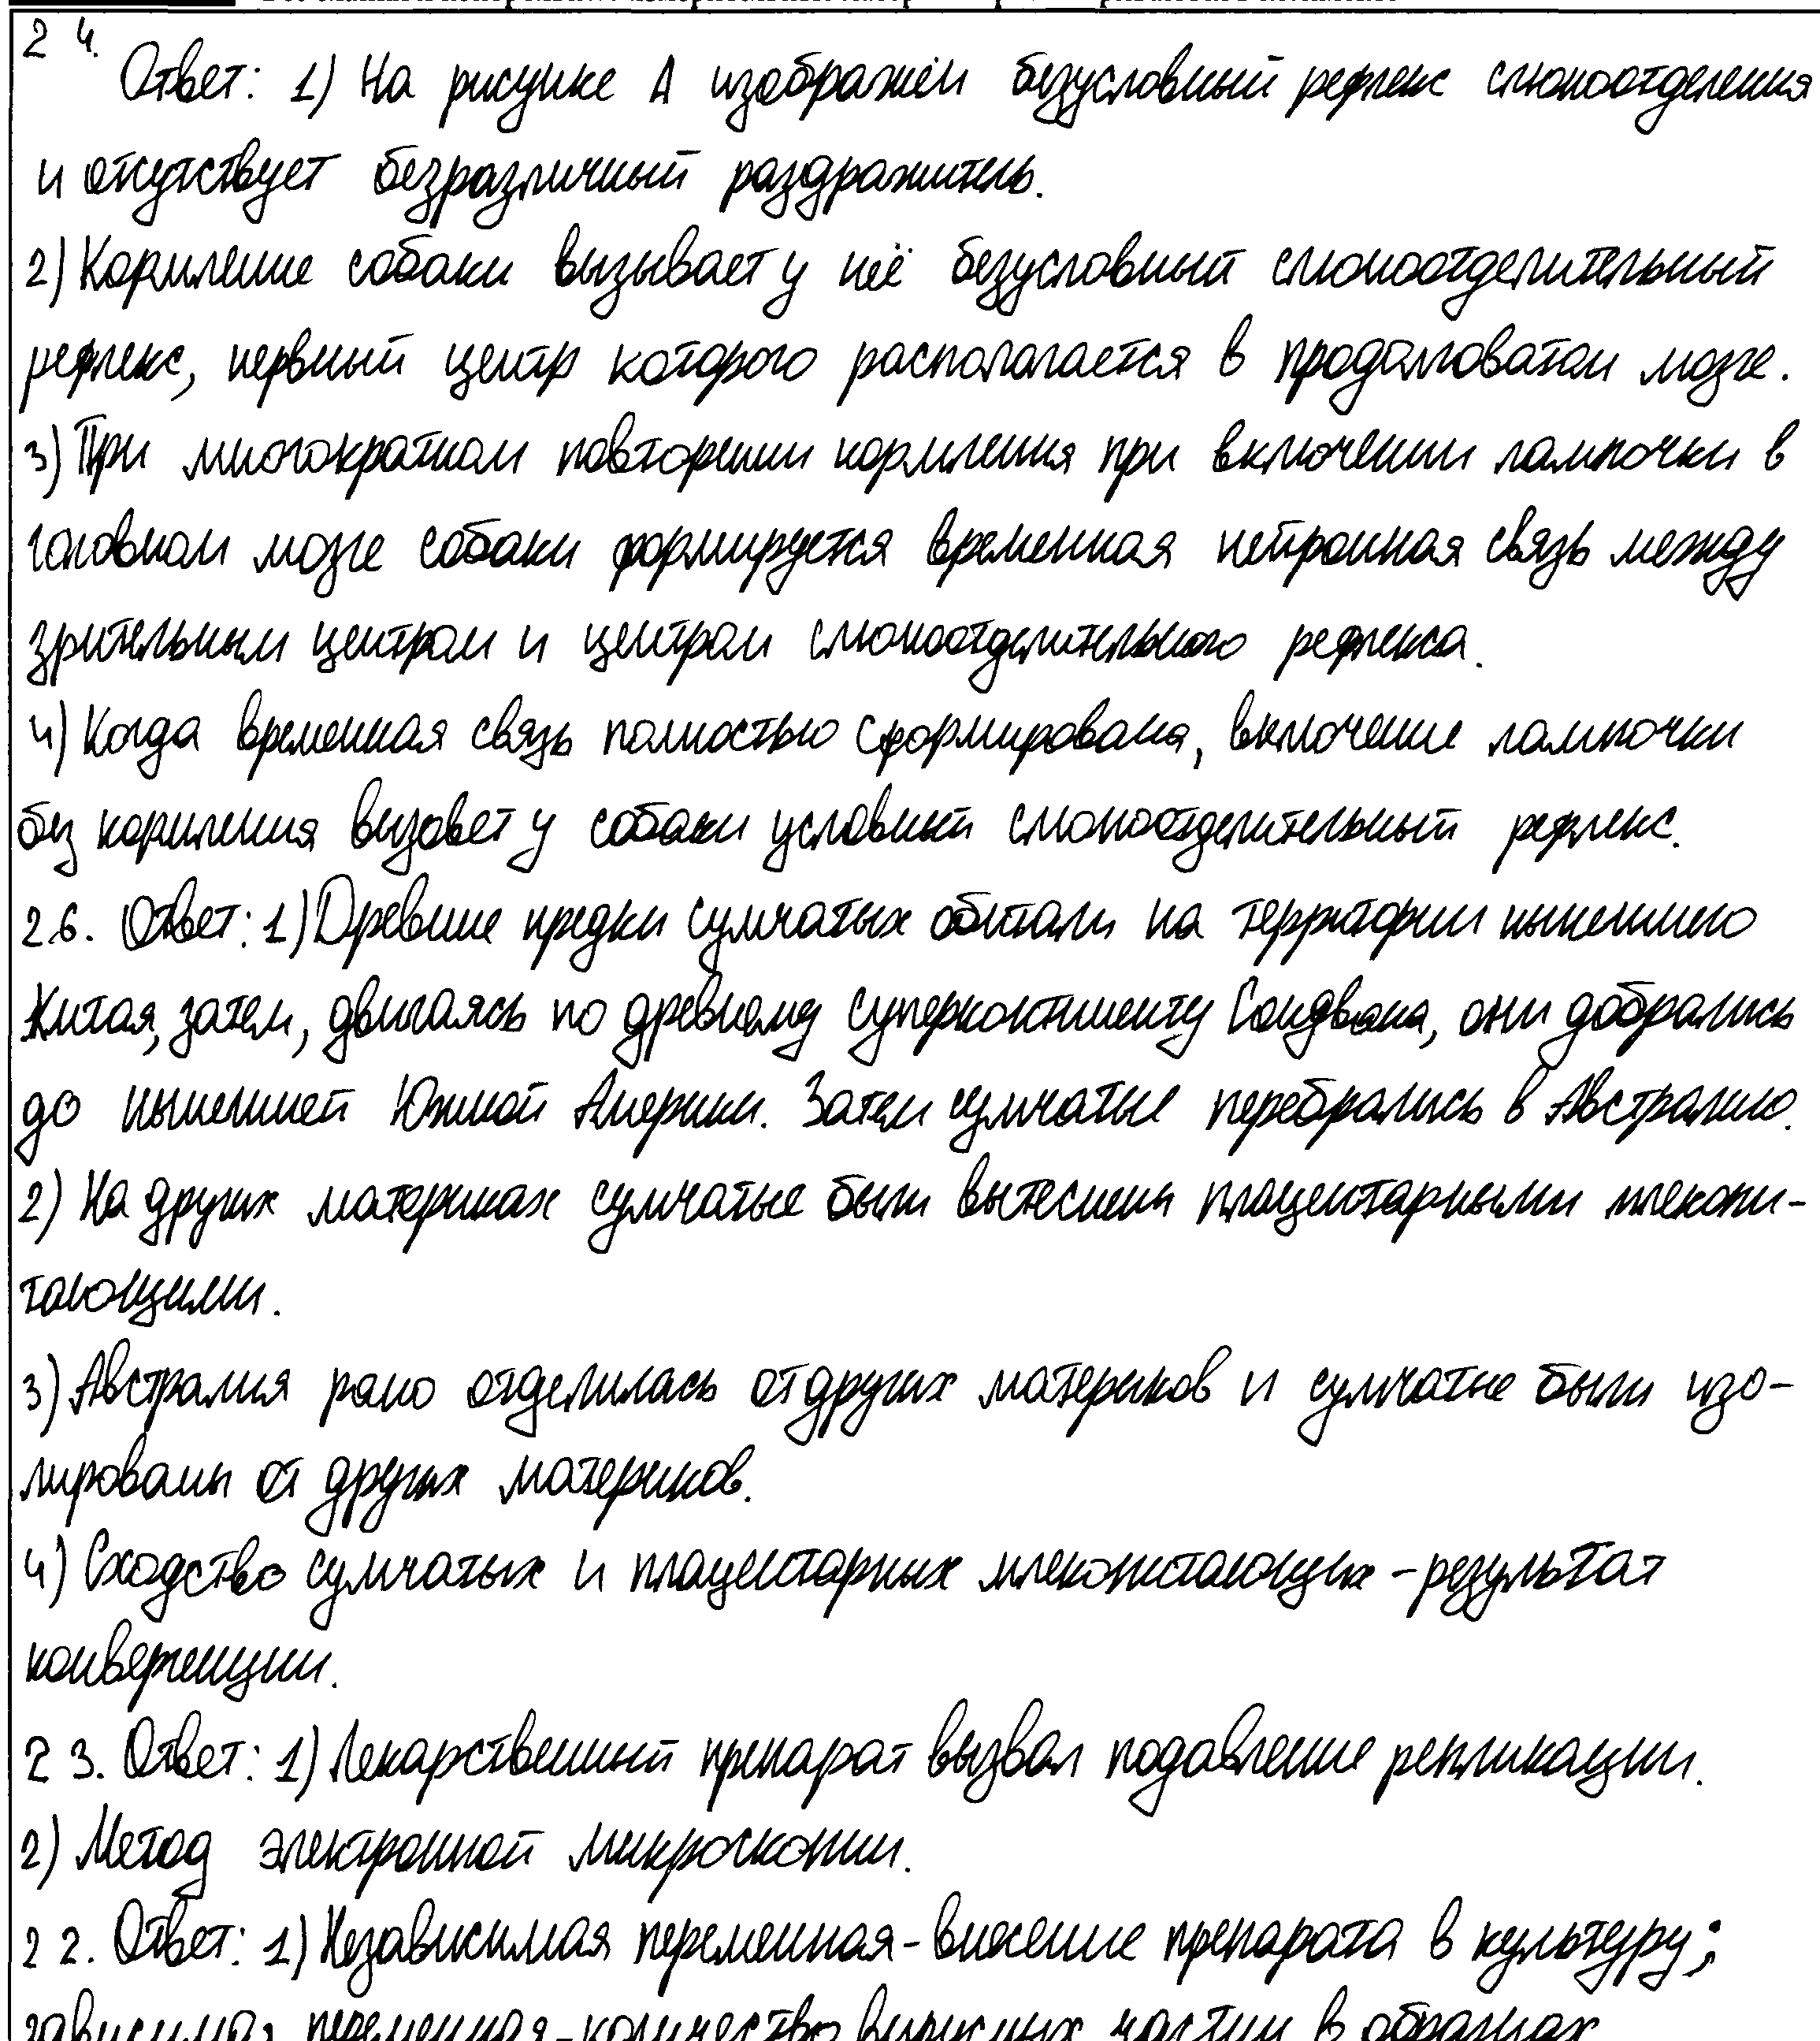 24.
Ответ: 1) На рисунке А изображён безусловный рефлекс слюноотделения
и отсутствует безразличный раздражитель.
2) Кормление собаки вызывает у неё безусловный слюноотделительный
рефлекс, нервный центр которого располагается в продолговатом мозге.
3) При многократном повторении кормления при включении лампочки в
головном мозге собаки формируется временная нейронная связь между
зрительным центром и центром слюноотделительного рефлекса.
4) Когда временная связь полностью сформирована, включение лампочки
без кормления вызовет у собаки условный слюноотделительный рефлекс.
26. Ответ: 1) Древние предки сумчатых обитали на территории нынешнего
Китая, затем, двигаясь по древнему суперконтиненту Гондвана, они добрались
до нынешней Южной Америки. Затем сумчатые перебрались в Австралию.
2) На других материках сумчатые были вытеснены плацентарными млекопи-
тающими.
3) Австралия рано отделилась от других материков и сумчатые были изо-
лированы от других материков.
4) Сходство сумчатых и плацентарных млекопитающих - результат
конвергенции.
23. Ответ: 1) Лекарственный препарат вызвал подавление репликации.
2) Метод электронной микроскопии.
22. Ответ: 1) Независимая переменная - внесение препарата в культуру;
зависимая переменная - количество вирусных частиц в образцах